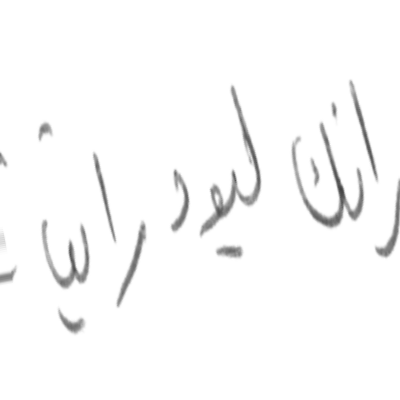 رانك ليود رايت